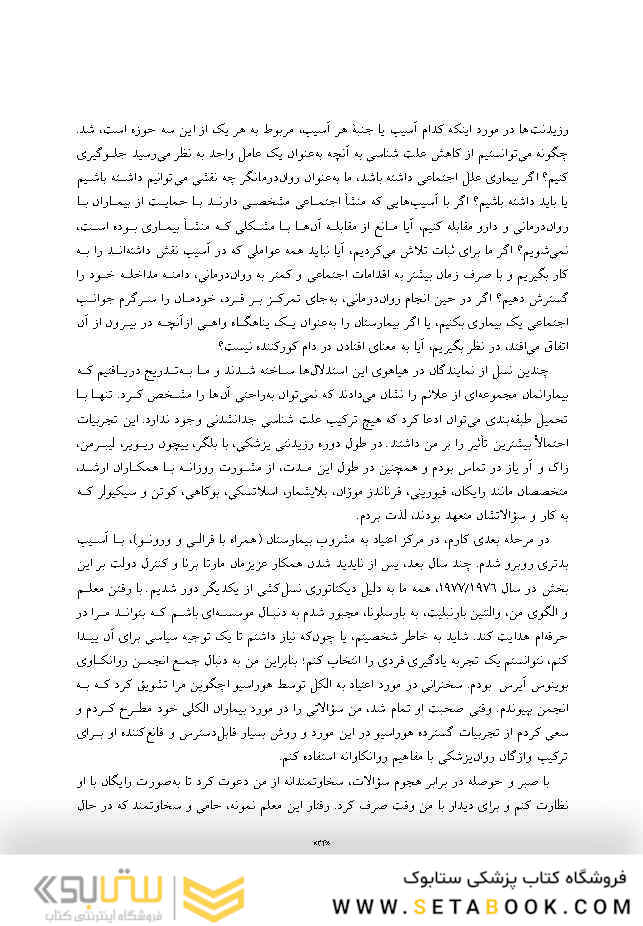 رزیدنت‌ها در مورد اینکه کدام آسیب یا جنبهٔ هر آسیب، مربوط به هر یک از این سه حوزه است، شد.
چگونه می‌توانستیم از کاهش علت شناسی به آنچه به‌عنوان یک عامل واحد به نظر می‌رسید جلوگیری
کنیم؟ اگر بیماری علل اجتماعی داشته باشد، ما به‌عنوان روان‌درمانگر چه نقشی می‌توانیم داشته باشیم
یا باید داشته باشیم؟ اگر با آسیب‌هایی که منشأ اجتماعی مشخصی دارند با حمایت از بیماران با
روان‌درمانی و دارو مقابله کنیم، آیا مانع از مقابله آن‌ها با مشکلی که منشأ بیماری بوده است،
نمی‌شویم؟ اگر ما برای ثبات تلاش می‌کردیم، آیا نباید همه عواملی که در آسیب نقش داشته‌اند را به
کار بگیریم و با صرف زمان بیشتر به اقدامات اجتماعی و کمتر به روان‌درمانی، دامنه مداخله خود را
گسترش دهیم؟ اگر در حین انجام روان‌درمانی، به‌جای تمرکز بر فرد، خودمان را سرگرم جوانب
اجتماعی یک بیماری بکنیم، یا اگر بیمارستان را به‌عنوان یک پناهگاه واهی ازآنچه در بیرون از آن
اتفاق می‌افتد، در نظر بگیریم، آیا به معنای افتادن در دام کورکننده نیست؟
چندین نسل از نمایندگان در هیاهوی این استدلال‌ها ساخته شدند و ما به‌تدریج دریافتیم که
بیمارانمان مجموعه‌ای از علائم را نشان می‌دادند که نمی‌توان به‌راحتی آن‌ها را مشخص کرد. تنها با
تحمیل طبقه‌بندی می‌توان ادعا کرد که هیچ ترکیب علت شناسی جدانشدنی وجود ندارد. این تجربیات
احتمالاً بیشترین تأثیر را بر من داشتند. در طول دوره رزیدنتی پزشکی، با بلگر، پیچون ریویر، لیبرمن،
زاک و آر یاز در تماس بودم و همچنین در طول این مدت، از مشورت روزانه با همکاران ارشد،
متخصصان مانند رایکان، فیورینی، فرناندز موژان، بلایشمار، اسلاتسکی، بوکاهی، کوتن و سیکیولر که
به کار و سؤالاتشان متعهد بودند، لذت بردم.
در مرحله بعدی کارم، در مرکز اعتیاد به مشروب بیمارستان (همراه با فرالی و ورونو)، با آسیب
بدتری روبرو شدم. چند سال بعد، پس از ناپدید شدن همکار عزیزمان مارتا برنا و کنترل دولت بر این
بخش در سال ۱۹۷۷/۱۹۷۶، همه ما به دلیل دیکتاتوری نسل‌کشی از یکدیگر دور شدیم. با رفتن معلم
و الگوی من، والنتین بارنبلیت، به بارسلونا، مجبور شدم به دنبال موسسه‌ای باشم که بتواند مرا در
حرفه‌ام هدایت کند. شاید به خاطر شخصیتم، یا چون‌که نیاز داشتم تا یک توجیه سیاسی برای آن پیدا
کنم، نتوانستم یک تجربه یادگیری فردی را انتخاب کنم؛ بنابراین من به دنبال جمع انجمن روانکاوی
بوینوس آیرس بودم. سخنرانی در مورد اعتیاد به الکل توسط هوراسیو اچگوین مرا تشویق کرد که به
انجمن بپیوندم. وقتی صحبت او تمام شد، من سؤالاتی را در مورد بیماران الکلی خود مطرح کردم و
سعی کردم از تجربیات گسترده هوراسیو در این مورد و روش بسیار قابل‌دسترس و قانع‌کننده او برای
ترکیب واژگان روان‌پزشکی با مفاهیم روانکاوانه استفاده کنم.
با صبر و حوصله در برابر هجوم سؤالات، سخاوتمندانه از من دعوت کرد تا به‌صورت رایگان با او
نظارت کنم و برای دیدار با من وقت صرف کرد. رفتار این معلم نمونه، حامی و سخاوتمند که در حال
«۲۴»
فروشگاه کتاب پزشکی ستابوک
WWW.SETABOOK.COM
ستابوک
فروشگاه اینترنتی کتاب